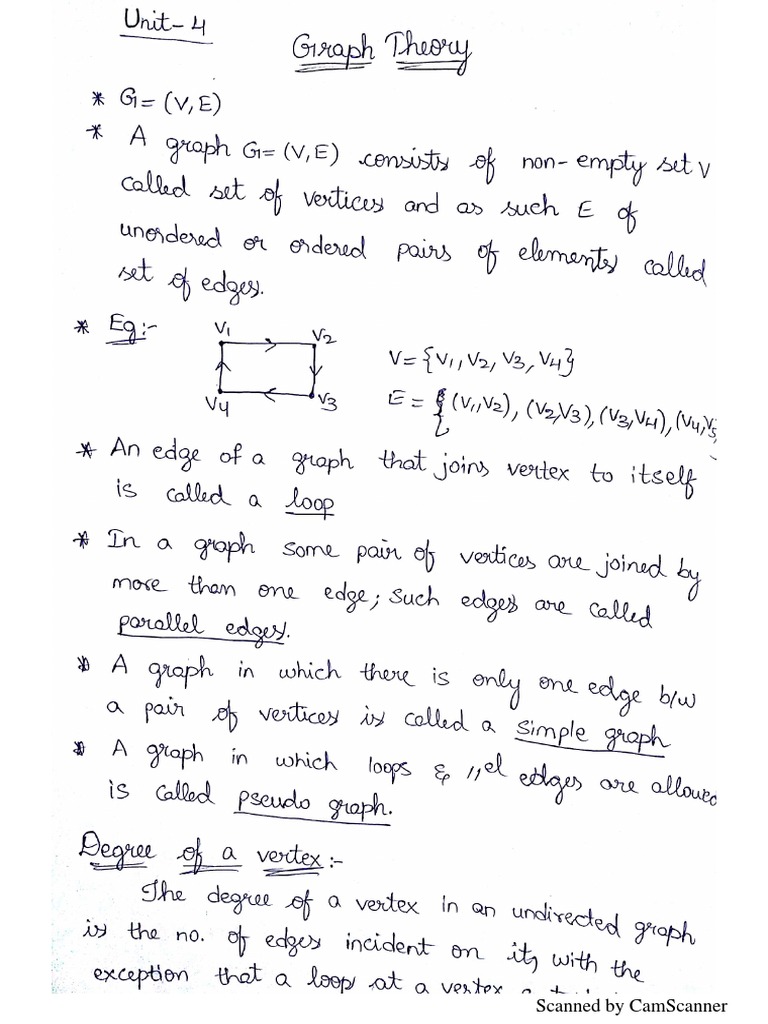 Unit-4
Graph Theory
* G = (V, E)
* A graph G = (V, E) consists of non-empty set V
called set of vertices and as such E of
unordered or ordered pairs of elements called
set of edges.
* Eg:-
V1
V2
V4
V3
V = {V1, V2, V3, V4}
E = {(V1,V2), (V2,V3), (V3,V4), (V4,V5,
* An edge of a graph that joins vertex to itself
is called a loop
* In a graph some pair of vertices are joined by
more than one edge; such edges are called
parallel edges.
* A graph in which there is only one edge b/w
a pair of vertices is called a simple graph
* A graph in which loops & //el edges are allowed
is called pseudo graph.
Degree of a vertex:-
The degree of a vertex in an undirected graph
is the no. of edges incident on it, with the
exception that a loop at a vertex
Scanned by CamScanner